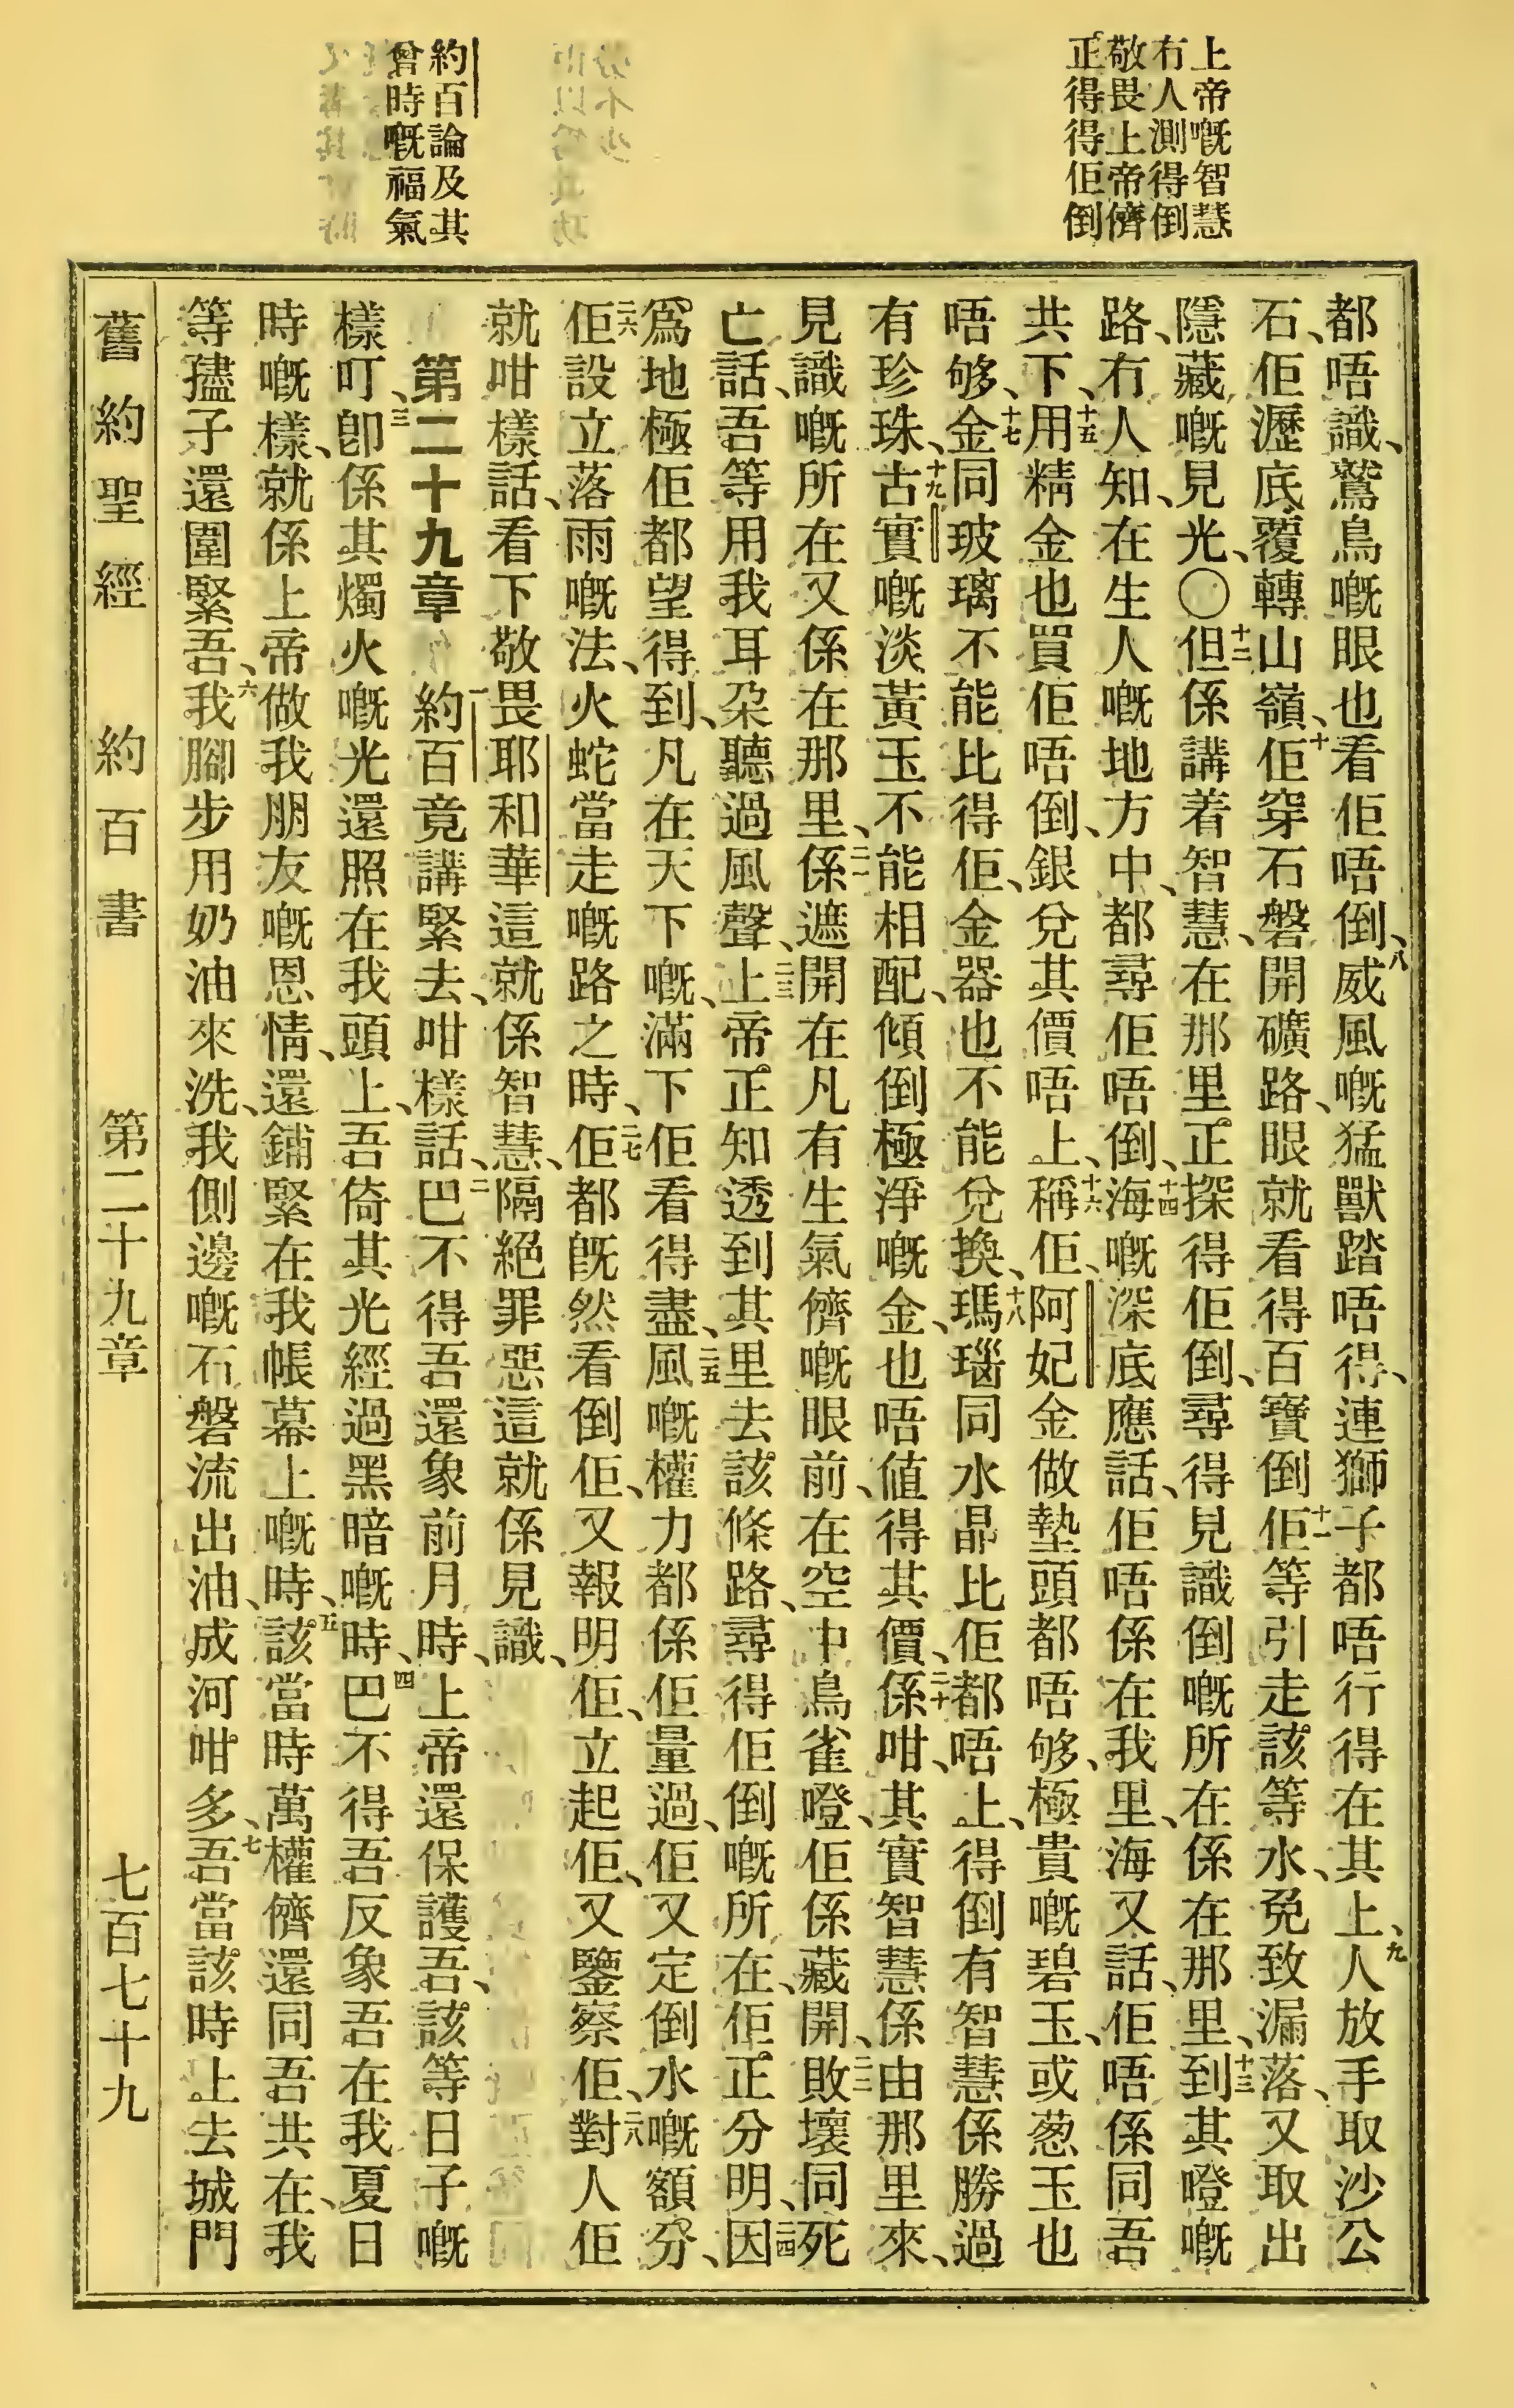 上帝嘅智慧
冇人測得倒
敬畏上帝儕
正得得佢倒
約百論及其
曾時嘅福氣
都唔識、鷲鳥嘅眼也看佢唔倒、八威風嘅猛獸踏唔得、連獅子都唔行得在其上、九人放手取沙公
石、佢瀝底覆轉山嶺、十佢穿石磐開礦路、眼就看得百寶倒十一佢等引走該等水、免致漏落、又取出
隱藏嘅見光、〇十二但係講着智慧、在那里正探得佢倒、尋得見識倒嘅所在係在那里、十三到其嶝嘅
路、冇人知、在生人嘅地方中、都尋佢唔倒、十四海嘅深底應話、佢唔係在我里、海又話、佢唔係同吾
共下、十五用精金也買佢唔倒、銀兌其價唔上、十六稱佢、阿妃金做墊頭都唔够、極貴嘅碧玉、或葱玉也
唔够、十七金同玻璃不能比得佢、金器也不能兌換、十八瑪瑙同水晶比佢都唔上、得倒有智慧係勝過
有珍珠、十九古實嘅淡黃玉不能相配、傾倒極淨嘅金、也唔值得其價、二十係咁、其實智慧係由那里來、
見識嘅所在又係在那里、二一係遮開在凡有生氣儕嘅眼前、在空中鳥雀嶝、佢係藏開、二二敗壞同死
亡話、吾等用我耳朶聽過風聲、二三上帝正知透到其里去該條路、尋得佢倒嘅所在、佢正分明、二四因
爲地極佢都望得到、凡在天下嘅、滿下佢看得盡、二五風嘅權力都係佢量過、佢又定倒水嘅額分、
二六佢設立落雨嘅法、火蛇當走嘅路之時、二七佢都旣然看倒佢、又報明佢、立起佢、又鑒察佢、二八對人佢
就咁樣話、看下敬畏耶和華、這就係智慧、隔絕罪惡這就係見識、
第二十九章 一約百竟講緊去、咁樣話、二巴不得吾還象前月時、上帝還保護吾、該等日子嘅
樣叮、三卽係其燭火嘅光還照在我頭上、吾倚其光經過黑暗嘅時、四巴不得吾反象吾在我夏日
時嘅樣、就係上帝做我朋友嘅恩情、還鋪緊在我帳幕上嘅時、五該當時萬權儕還同吾共在、我
等𡥧子還圍緊吾、六我腳步用奶油來洗、我側邊嘅石磐流出油、成河咁多、七吾當該時上去城門
舊約聖經 約百書 第二十九章 七百七十九